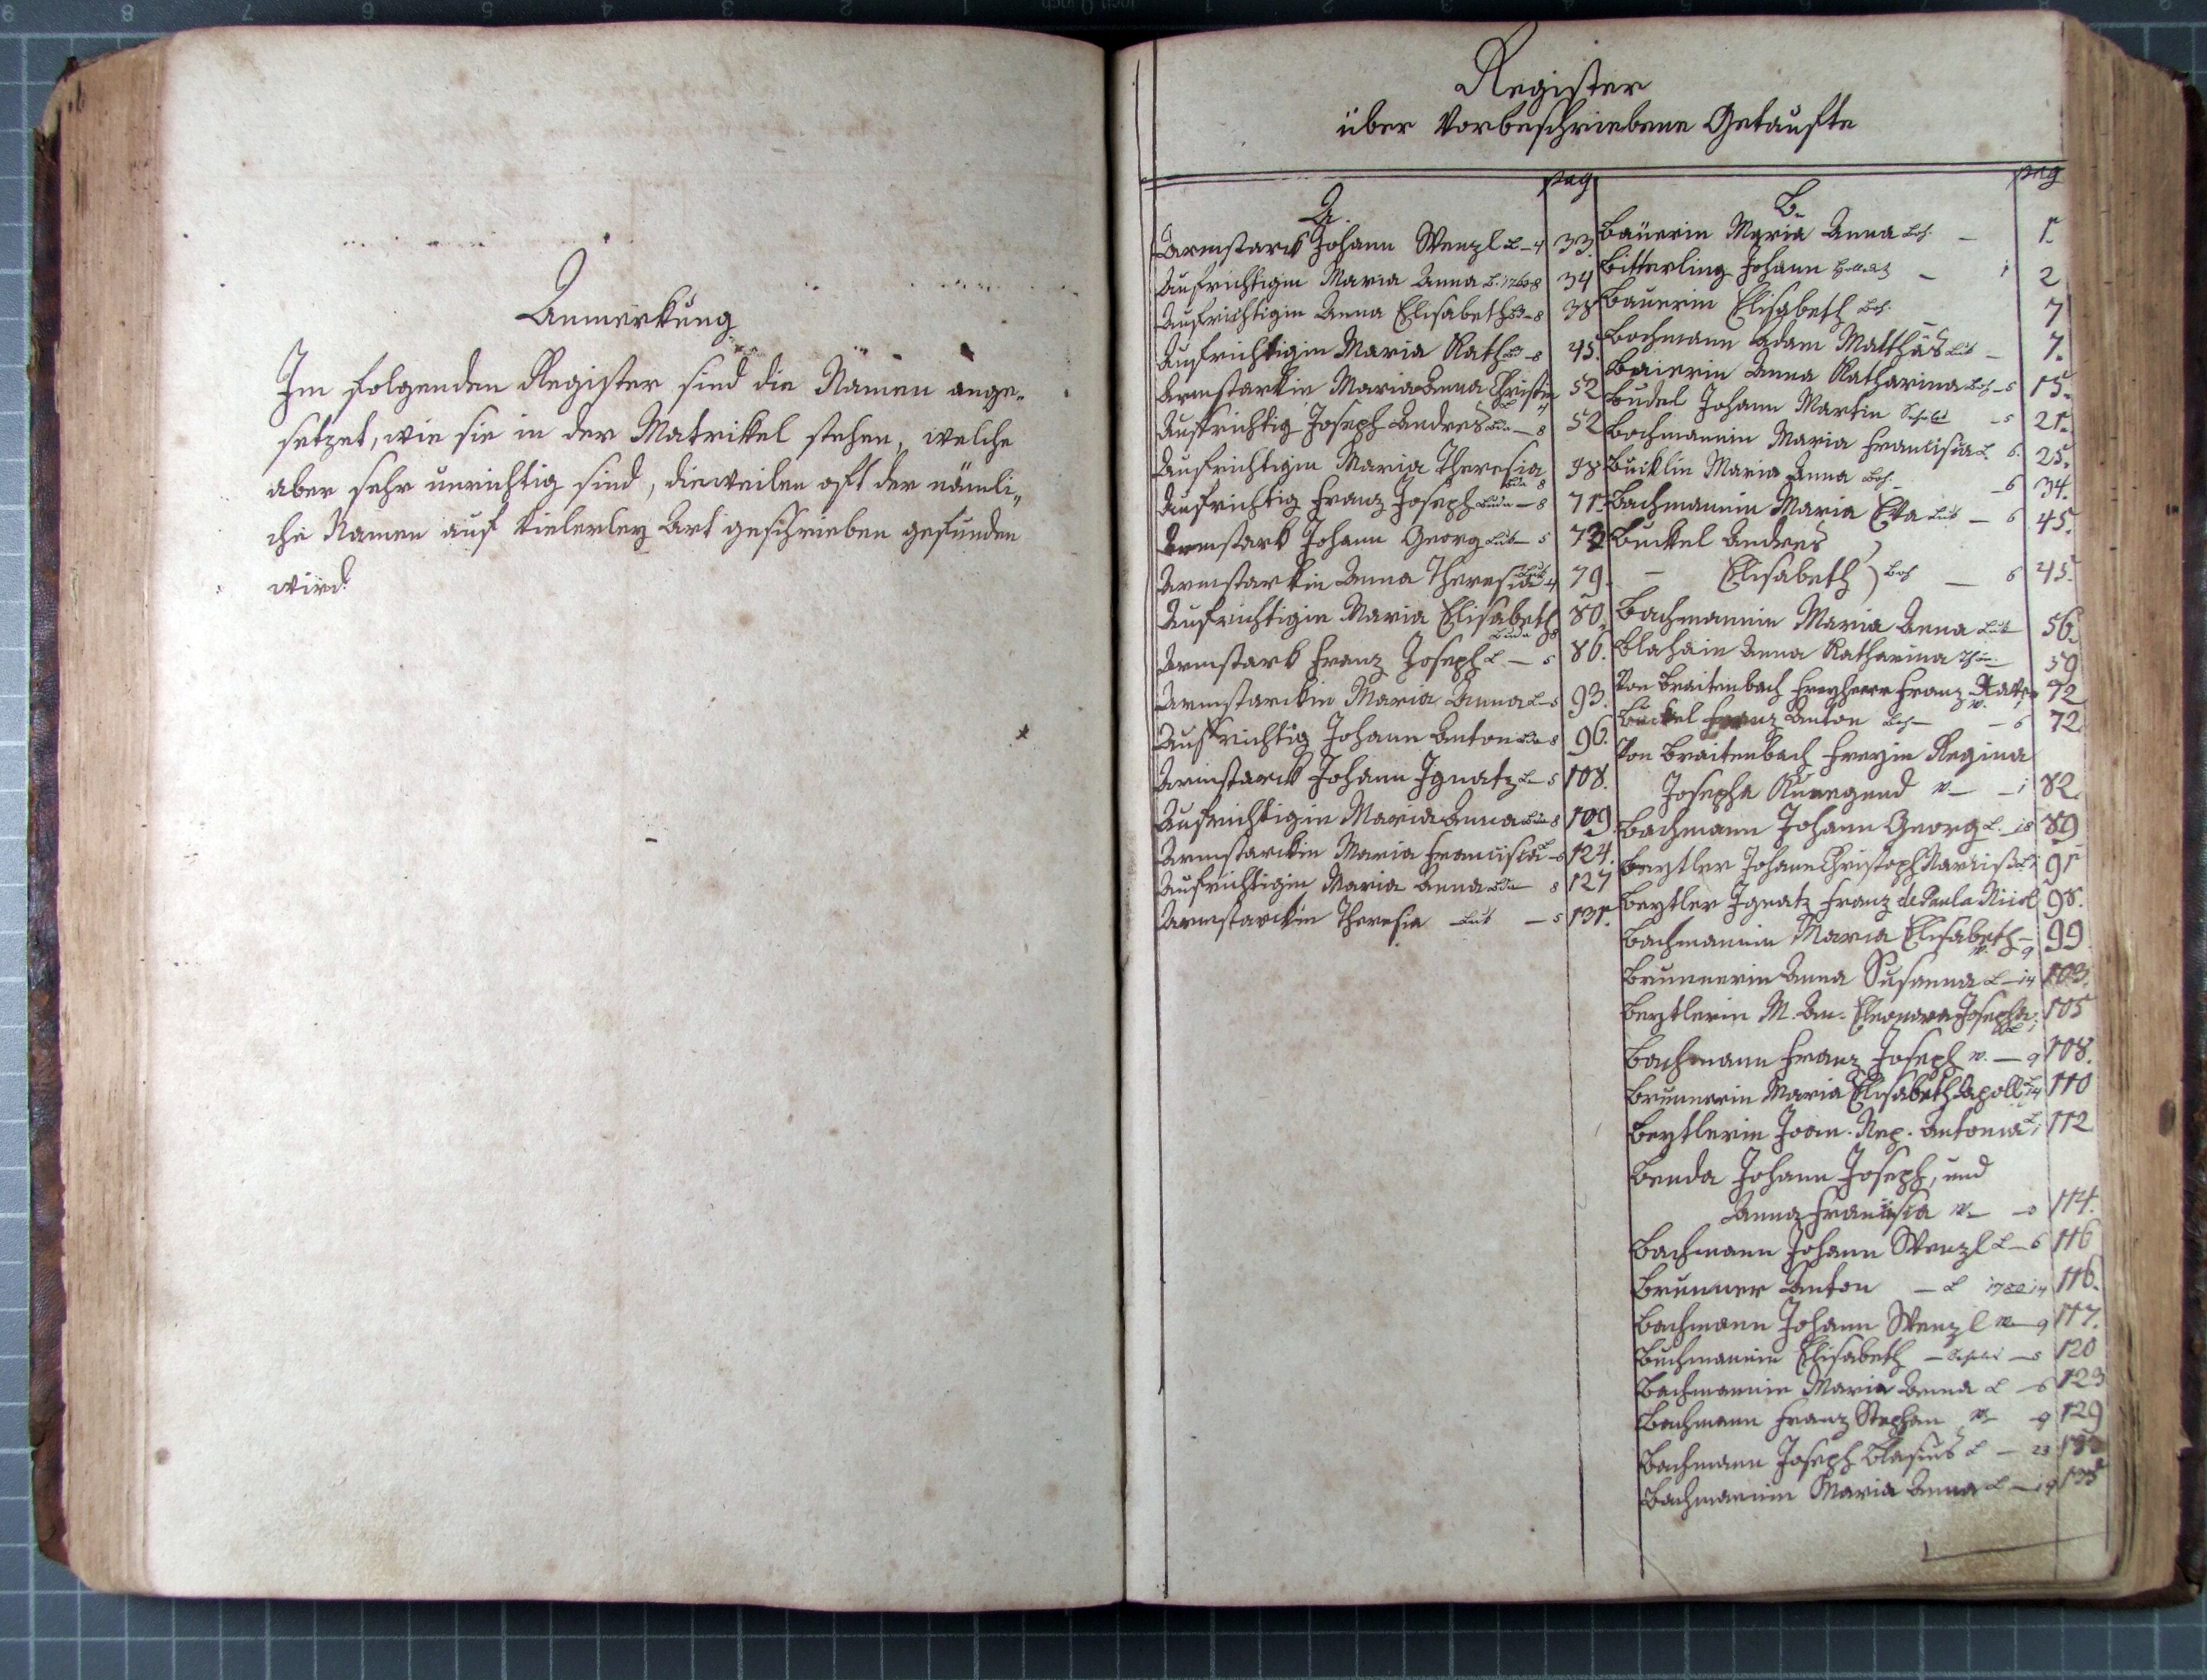 Anmerkung
Im folgenden Register sind die Namen ange-
setzet, wie sie in der Matrikel stehen, welche
aber sehr unrichtig sind, dieweilen oft der nämli-
che Namen auf vielerley Art geschrieben gefunden
wird.
Register
über Vorbeschriebene Getaufte
A. pag
Armstarck Johann Wenzl L - 4 33.
Aufrichtigin Maria Anna 34
Aufrichtigin Anna Elisabeth 8 38
Aufrichtigin Maria Kath 8 45.
Armstarkin Maria Anna Christin 52
Aufrichtig Joseph Andres 8 52
Aufrichtigin Maria Theresia 8
Aufrichtig Franz Joseph - 8 71.
Armstark Johann Georg Lub - 5
Armstarkin Anna Theresia 4 79.
Aufrichtigin Maria Elisabeth 80.
Armstark Franz Joseph L - 5 86.
Armstarckin Maria Anna L - 5 93.
Aufrichtig Johann Anton 8 96.
Armstarck Johann Ignatz L - 5 108.
Aufrichtigin Maria Anna 8 109.
Armstarckin Maria Francisca 124.
Aufrichtigin Maria Anna 8 127
Armstarckin Theresia Lub - 5 131.
B. pag
Bäuerin Maria Anna Bos. - 1.
Bitterling Johann - 2
Bauerin Elisabeth Bos. - 7
Bochmann Adam Matthäs Lub - 7.
Baierin Anna Katharina Bos - 5 15.
Budel Johann Martin - 5 21.
Bochmannin Maria Francisca L. 6. 25.
Bucklin Maria Anna Bos. - 6 34.
Bachmannin Maria Eva Lub - 6 45.
Buckel Andres
- Elisabeth Bos - 6 45.
Bachmannin Maria Anna Lub 56.
Blahain Anna Katharina 59
Von Braitenbach Freyherr Franz Xav. 72
Buckel Franz Anton Bos - 6 72.
Von Braitenbach Freyin Regina
Josepha Kunegund - 82.
Bachmann Johann Georg L. 89
Beytler Johann Christoph Narciss 91
Beytler Ignatz Franz de Paula Nicol 98.
Bachmannin Maria Elisabeth - 9 99.
Brunnerin Anna Susanna L - 14 103.
Beytlerin M. An. Eleonora Josepha 105
Bachmann Franz Joseph - 9 108.
Brunnerin Maria Elisabeth Apoll 14 110
Beytlerin Joan. Nep. Antonia 112
Benda Johann Joseph, und
Anna Francisca 114.
Bachmann Johann Wenzl L - 6 116
Brunner Anton - L 14 116.
Bachmann Johann Wenzl - 9 117.
Buchmannin Elisabeth - 5 120
Bachmannin Maria Anna L - 6 123
Bachmann Franz Stephan - 9 129
Bachmann Joseph Blasius L - 23
Bachmannin Maria Anna L - 14 135